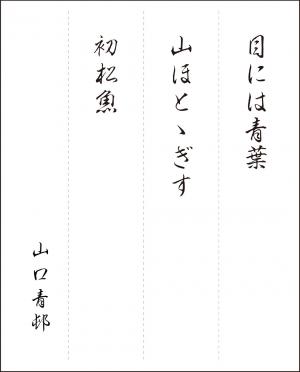 目には青葉
山ほとゝぎす
初松魚
山口青邨